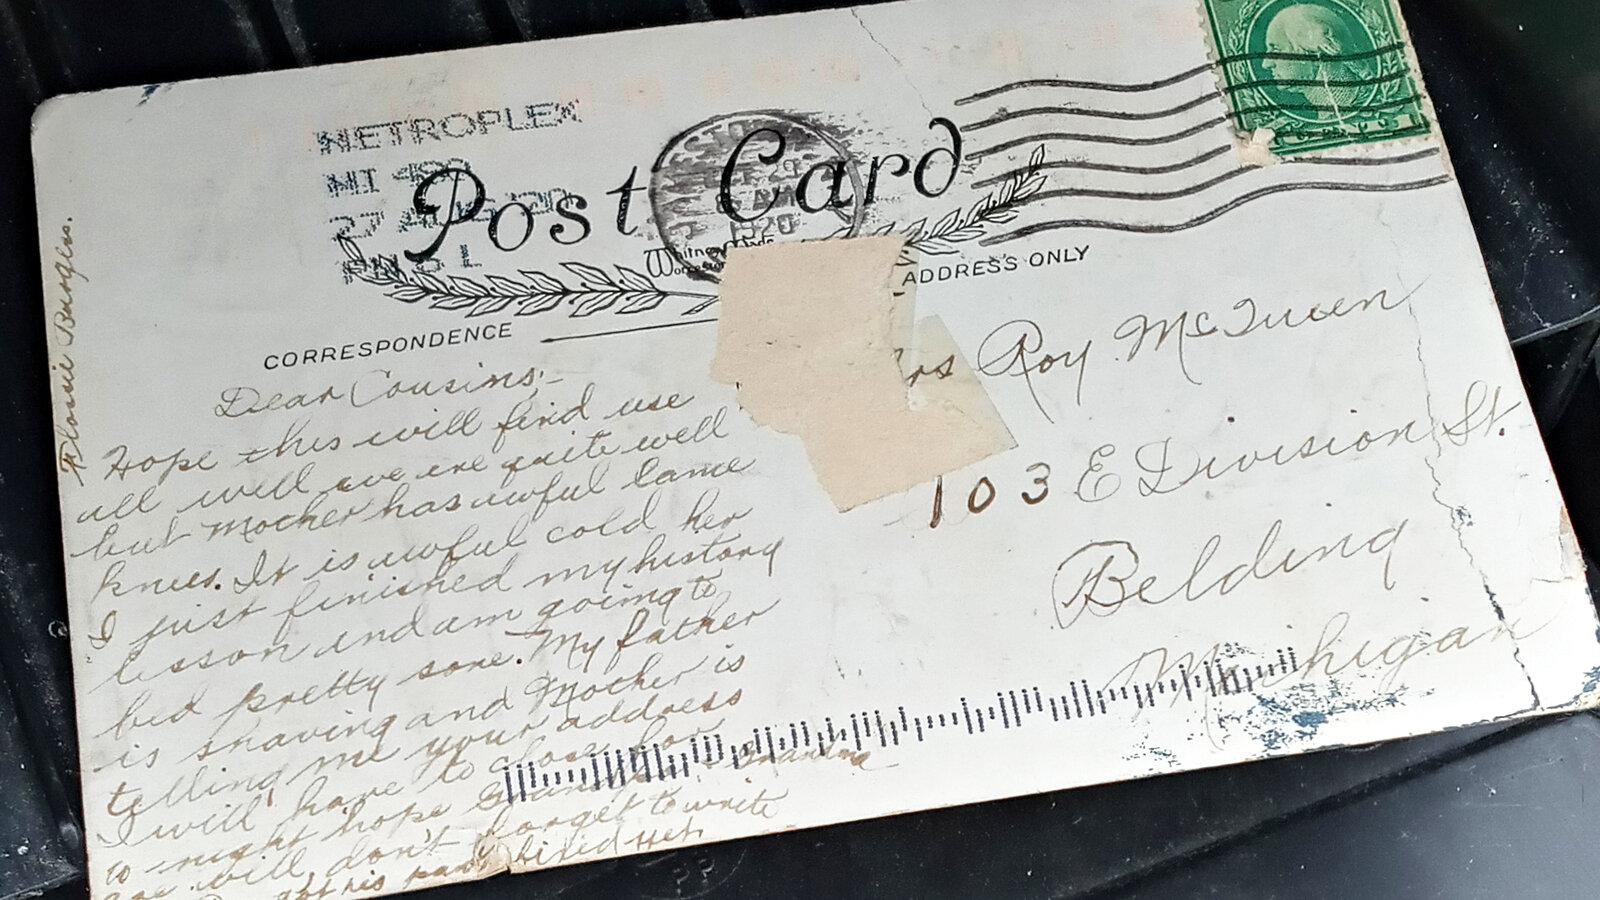 METROPLEX
MI 480
Post Card
1920
Whitney Made
Worcester
CORRESPONDENCE
ADDRESS ONLY
Flossie Burgiss.
Dear Cousins:-
Hope this will find use
all well we are quite well
but Mother has awful lame
knees. It is awful cold her
I just finished my history
lesson and am going to
bed pretty sone. My father
is shaving and Mother is
telling me your address
I will have to close for
to night hope Grandma
will don't forget to write
got his pants fixed yet
Mrs Roy McQueen
103 E Division St.
Belding
Michigan